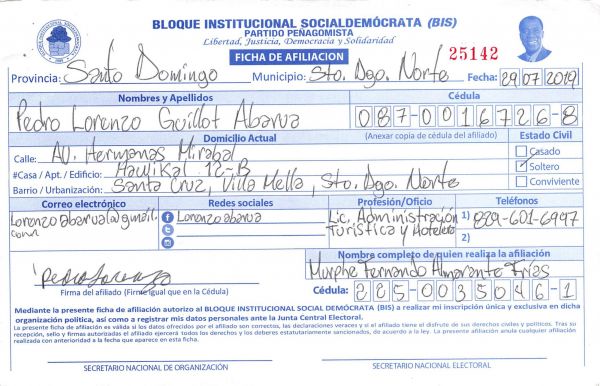 BLOQUE INSTITUCIONAL SOCIALDEMÓCRATA (BIS)
PARTIDO PEÑAGOMISTA
Libertad, Justicia, Democracia y Solidaridad
FICHA DE AFILIACION
25142
Provincia: Santo Domingo Municipio: Sto. Dgo. Norte Fecha: 29 07 2019
Nombres y Apellidos Cédula
Pedro Lorenzo Guillot Abarua 087-0016726-8
Domicilio Actual (Anexar copia de cédula del afiliado) Estado Civil
Calle: Av. Hermanas Mirabal Casado
#Casa / Apt. / Edificio: Hawikal 12-B Soltero
Barrio / Urbanización: Santa Cruz, Villa Mella, Sto. Dgo. Norte Conviviente
Correo electrónico Redes sociales Profesión/Oficio Teléfonos
Lorenzoabarua@gmail. Lorenzoabarua Lic. Administración 1) 829-601-6997
com Turística y Hotelera 2)
Nombre completo de quien realiza la afiliación
Pedro Lorenzo Murphe Fernando Almarante Frías
Firma del afiliado (Firme igual que en la Cédula) Cédula: 225-0035046-1
Mediante la presente ficha de afiliación autorizo al BLOQUE INSTITUCIONAL SOCIAL DEMÓCRATA (BIS) a realizar mi inscripción única y exclusiva en dicha
organización política, así como a registrar mis datos personales ante la Junta Central Electoral.
La presente ficha de afiliación es válida si los datos ofrecidos por el afiliado son correctos, las declaraciones veraces y si el afiliado tiene el disfrute de sus derechos civiles y políticos. Tras su
recepción, sello y firmas autorizadas el afiliado ejercerá todos los derechos y los deberes estatutariamente sancionados, de acuerdo a la ley. La presente afiliación anula cualquier afiliación
realizada con anterioridad a la fecha que aparece en esta ficha.
SECRETARIO NACIONAL DE ORGANIZACIÓN SECRETARIO NACIONAL ELECTORAL